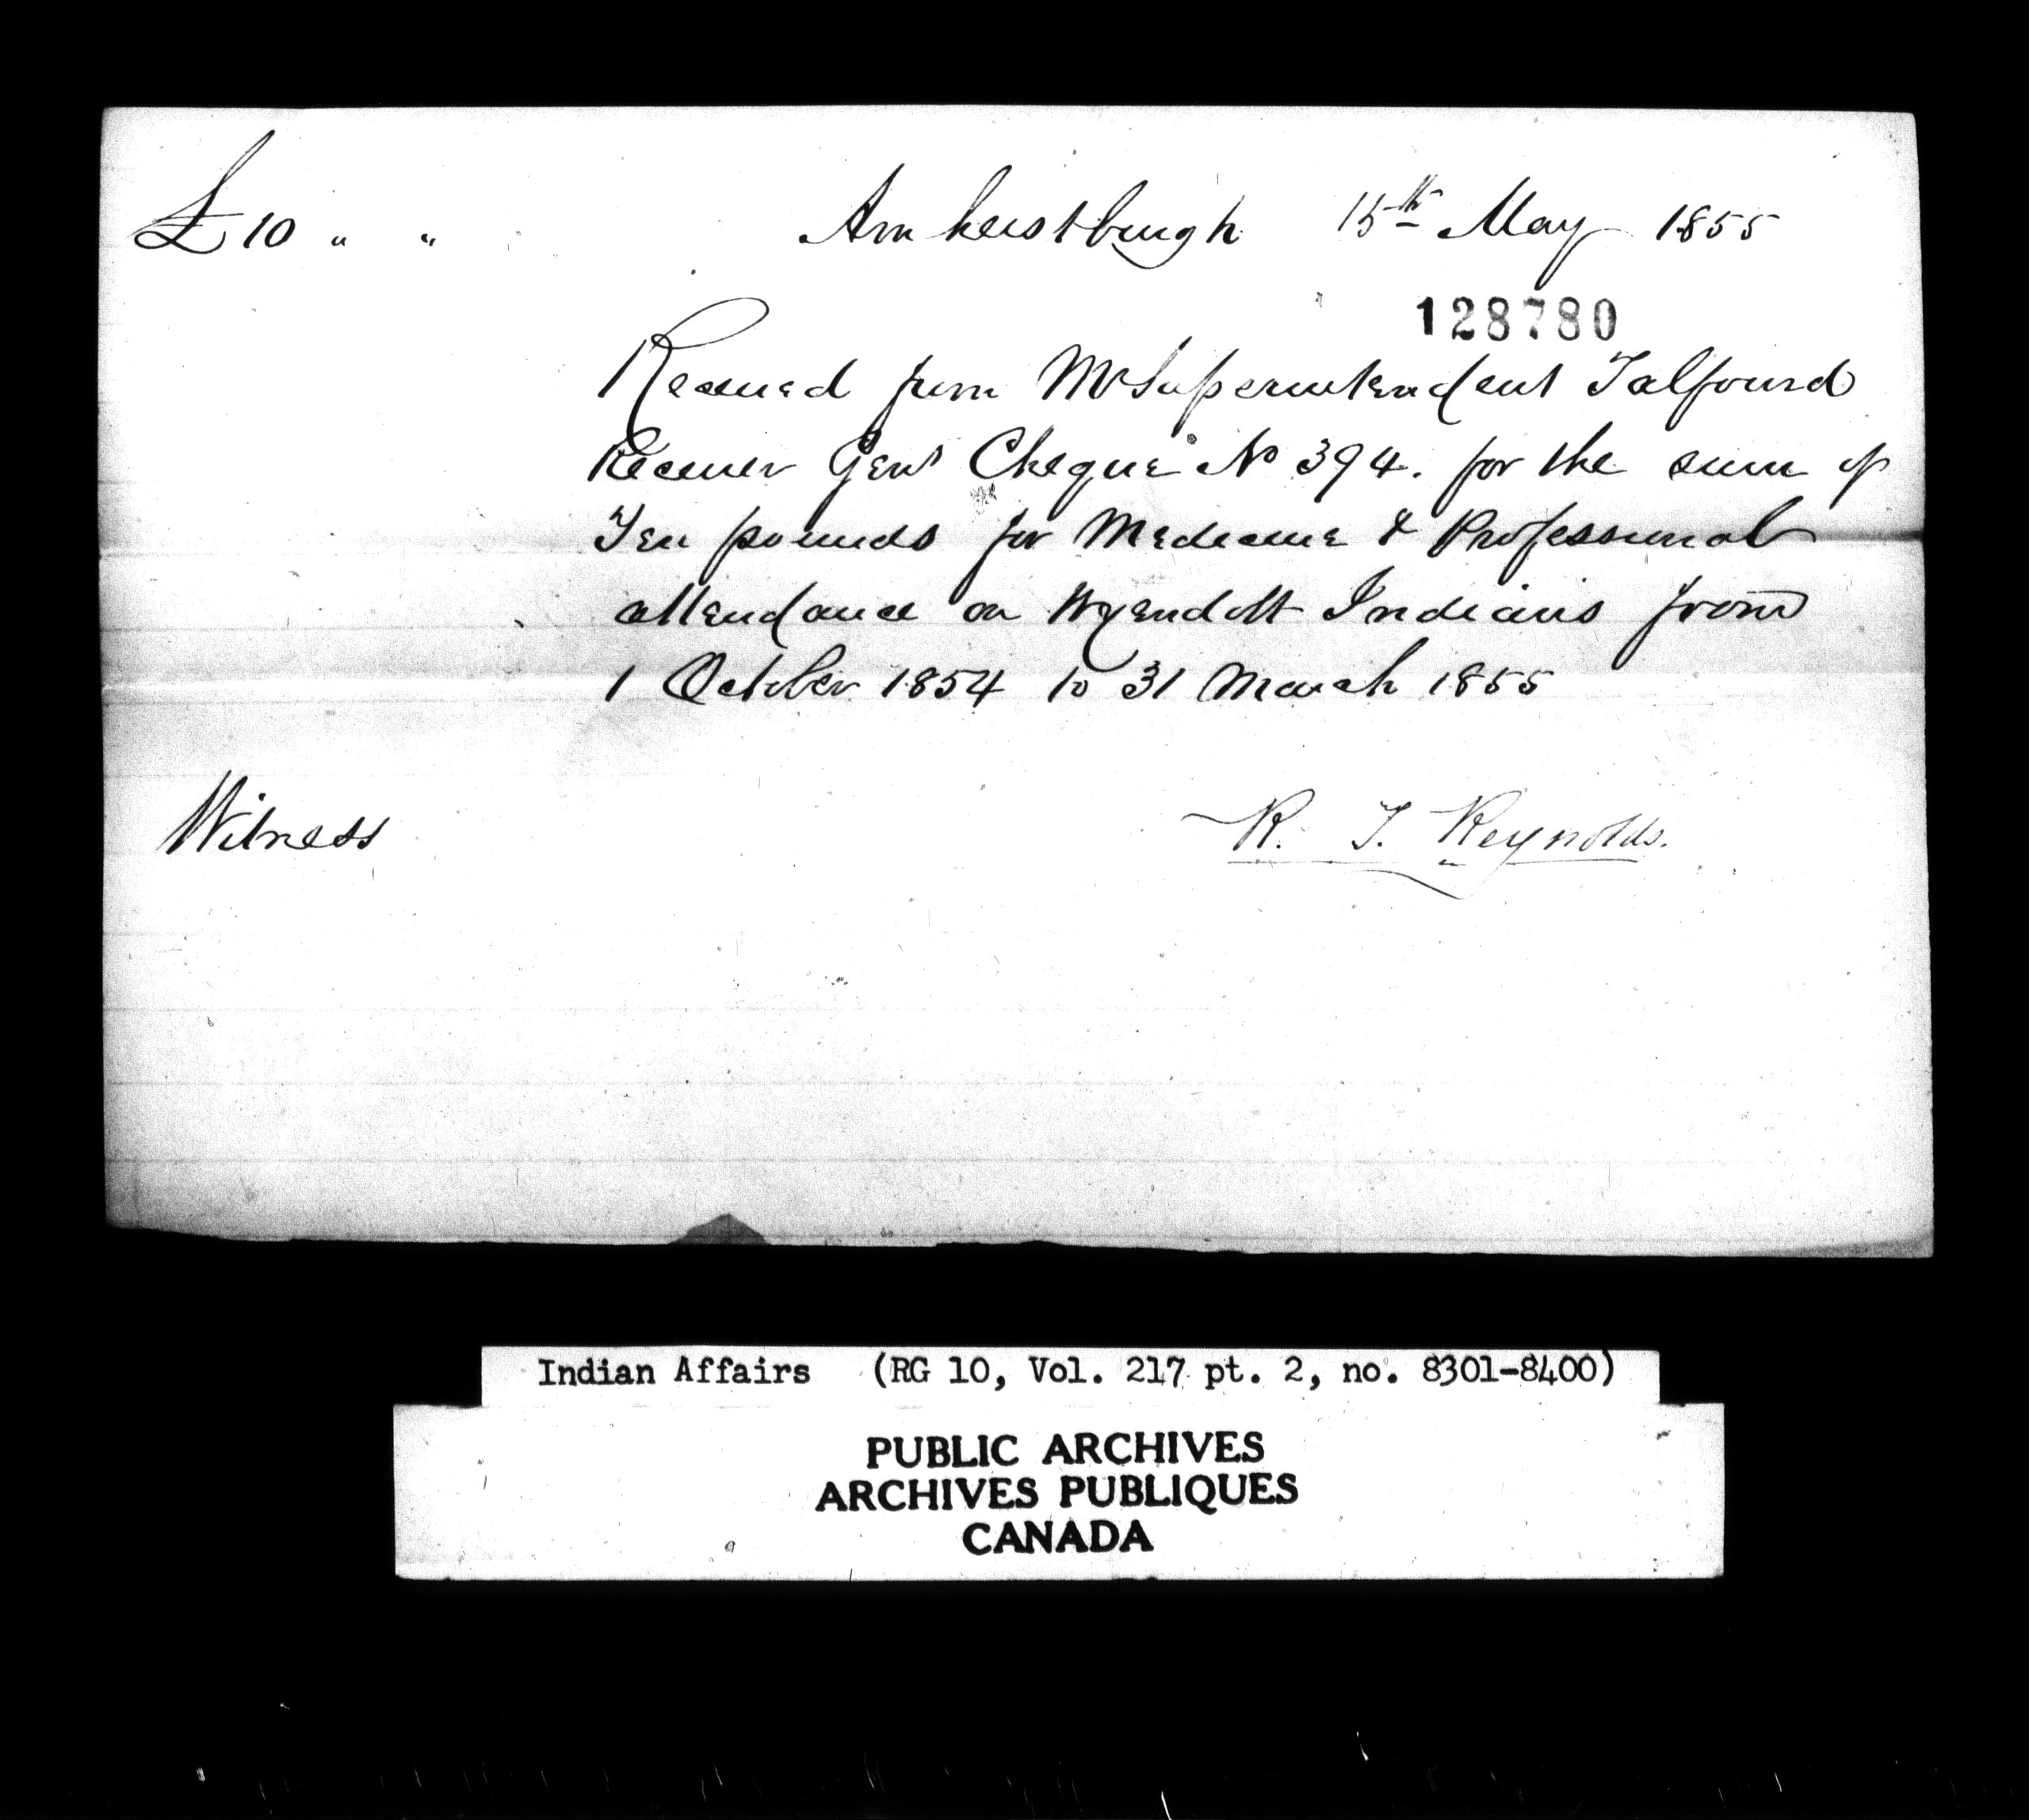 £10 " " Amherstburgh 15th May 1855
128780
Received from Mr Superintendent Talfourd
Receiver Genl Cheque No 394. for the sum of
Ten pounds for Medicine & Professional
attendance on Wyendott Indians from
1 October 1854 to 31 March 1855
Witness R. T. Reynolds.
Indian Affairs (RG 10, Vol. 217 pt. 2, no. 8301-8400)
PUBLIC ARCHIVES
ARCHIVES PUBLIQUES
CANADA